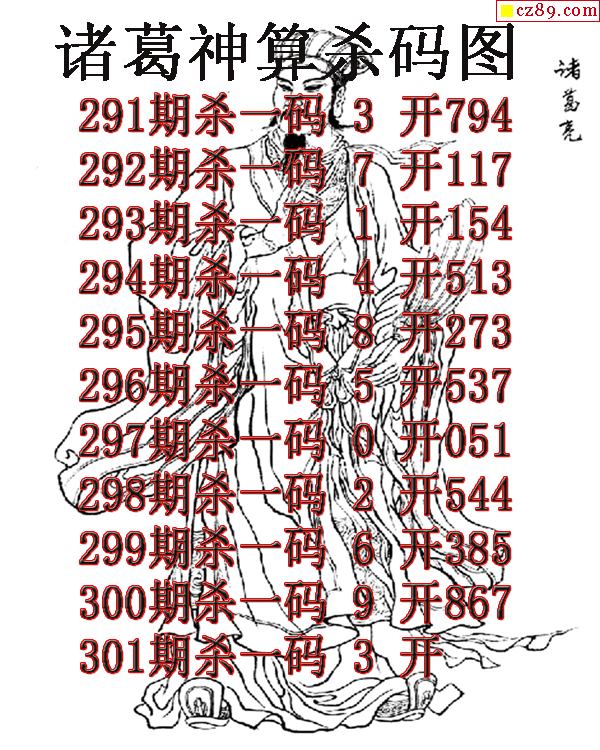 cz89.com
诸葛神算杀码图
诸葛亮
291期杀一码 3 开794
292期杀一码 7 开117
293期杀一码 1 开154
294期杀一码 4 开513
295期杀一码 8 开273
296期杀一码 5 开537
297期杀一码 0 开051
298期杀一码 2 开544
299期杀一码 6 开385
300期杀一码 9 开867
301期杀一码 3 开